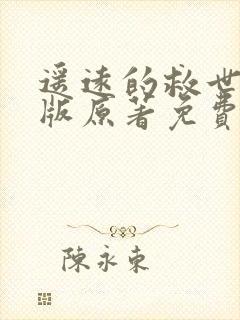 遥远的救世
版原著免費
陳永東